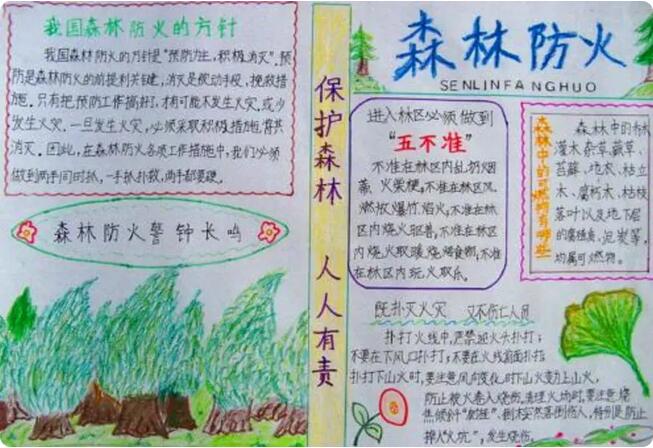 我国森林防火的方针
我国森林防火的方针是“预防为主，积极消灭”。预
防是森林防火的前提和关键，消灭是被动手段，挽救措
施。只有把预防工作搞好，才有可能不发生火灾或少
发生火灾。一旦发生火灾，必须采取积极措施，将其
消灭。因此，在森林防火各项工作措施中，我们必须
做到两手同时抓，一手抓扑救，两手都要硬。
森林防火警钟长鸣
保护森林 人人有责
森林防火
SENLINFANGHUO
进入林区必须做到
“五不准”
不准在林区内乱扔烟
蒂、火柴梗；不准在林区
燃放爆竹、焰火；不准在林
区内烧火驱兽；不准在林
区内烧火取暖、烧烤食物；不准
在林区内玩火取乐。
森林中的可燃物有哪些
森林中的
灌木、杂草、蕨草、
苔藓、地衣、枯立
木、腐朽木、枯枝
落叶以及地下层
的腐殖质、泥炭等，
均属可燃物。
既扑灭火灾 又不伤亡人员
扑打火线中，严禁迎火头扑打；
不要在下风口扑打；不要在火线前面扑打；
扑打下山火时，要注意风向变化时下山火变为上山火，
防止被火卷入烧伤。清理火场时，要注意烧
焦倾斜“树挂”、倒木突然落倒伤人，特别是防止
掉入“火坑”，发生烧伤。